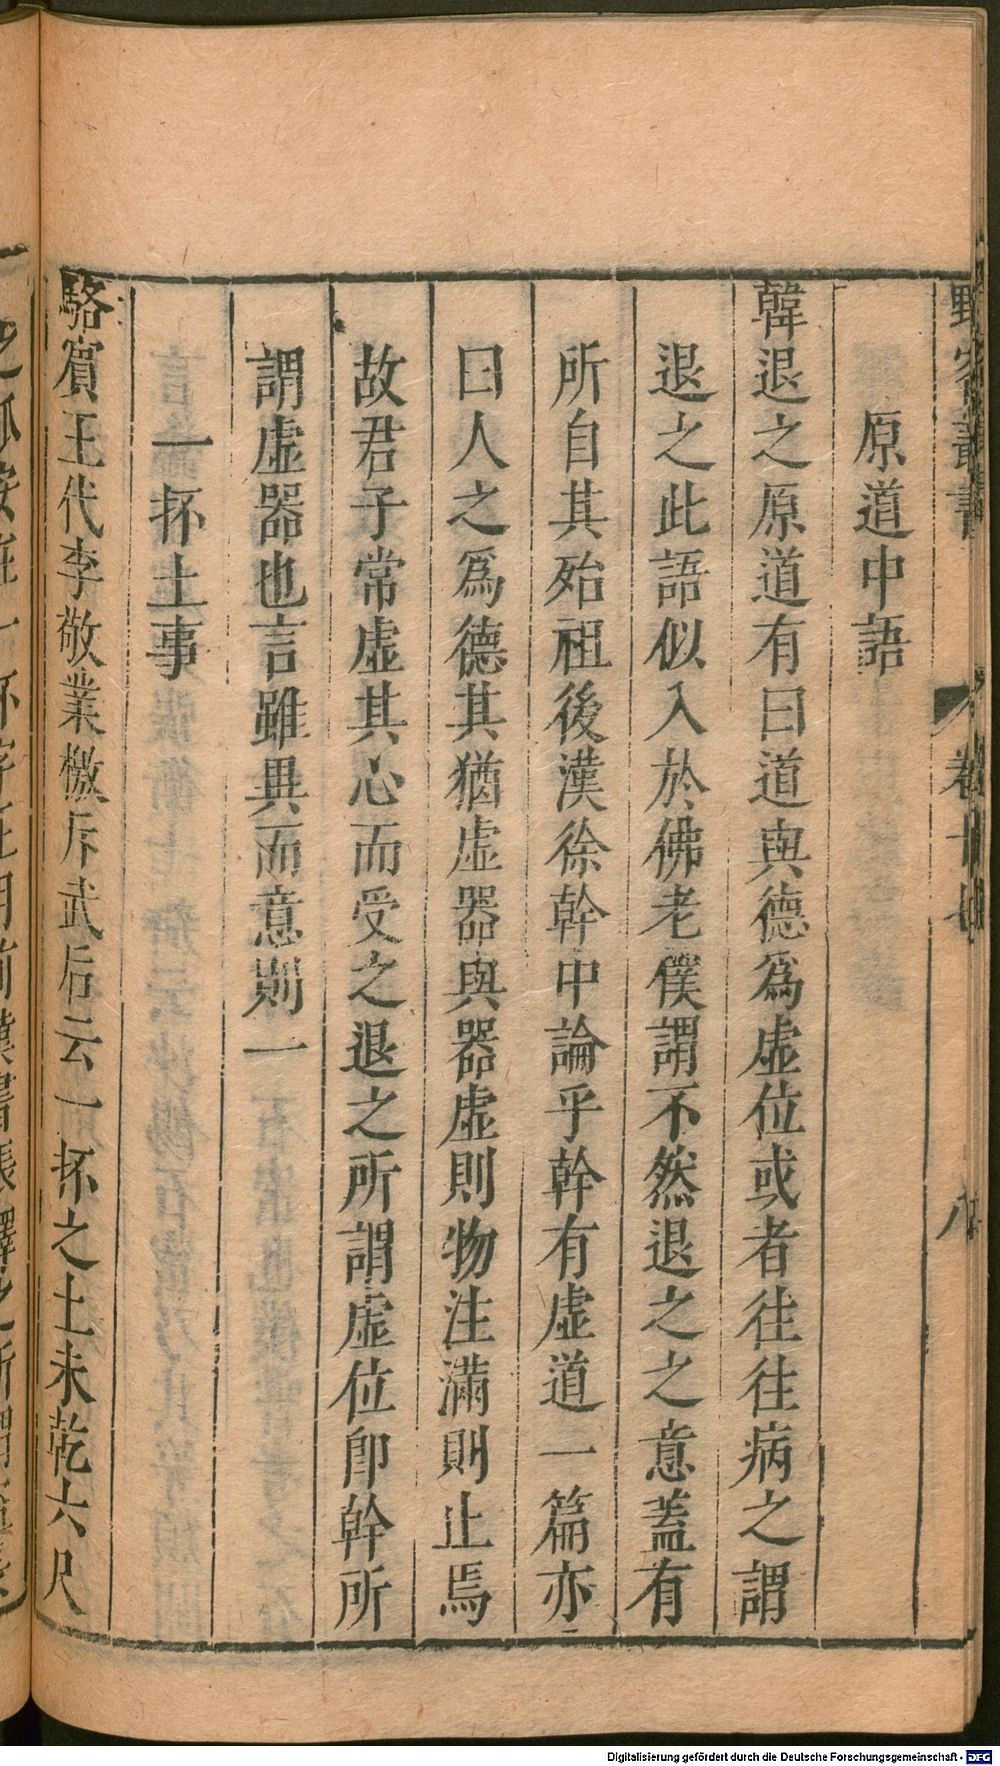 野客叢書
卷十七
八
原道中語
韓退之原道有曰道與德爲虛位或者往往病之謂
退之此語似入於佛老僕謂不然退之之意蓋有
所自其殆祖後漢徐幹中論乎幹有虛道一篇亦
曰人之爲德其猶虛器與器虛則物注滿則止焉
故君子常虛其心而受之退之所謂虛位卽幹所
謂虛器也言雖異而意則一
一抔土事
駱賓王代李敬業檄斥武后云一抔之土未乾六尺
Digitalisierung gefördert durch die Deutsche Forschungsgemeinschaft - DFG